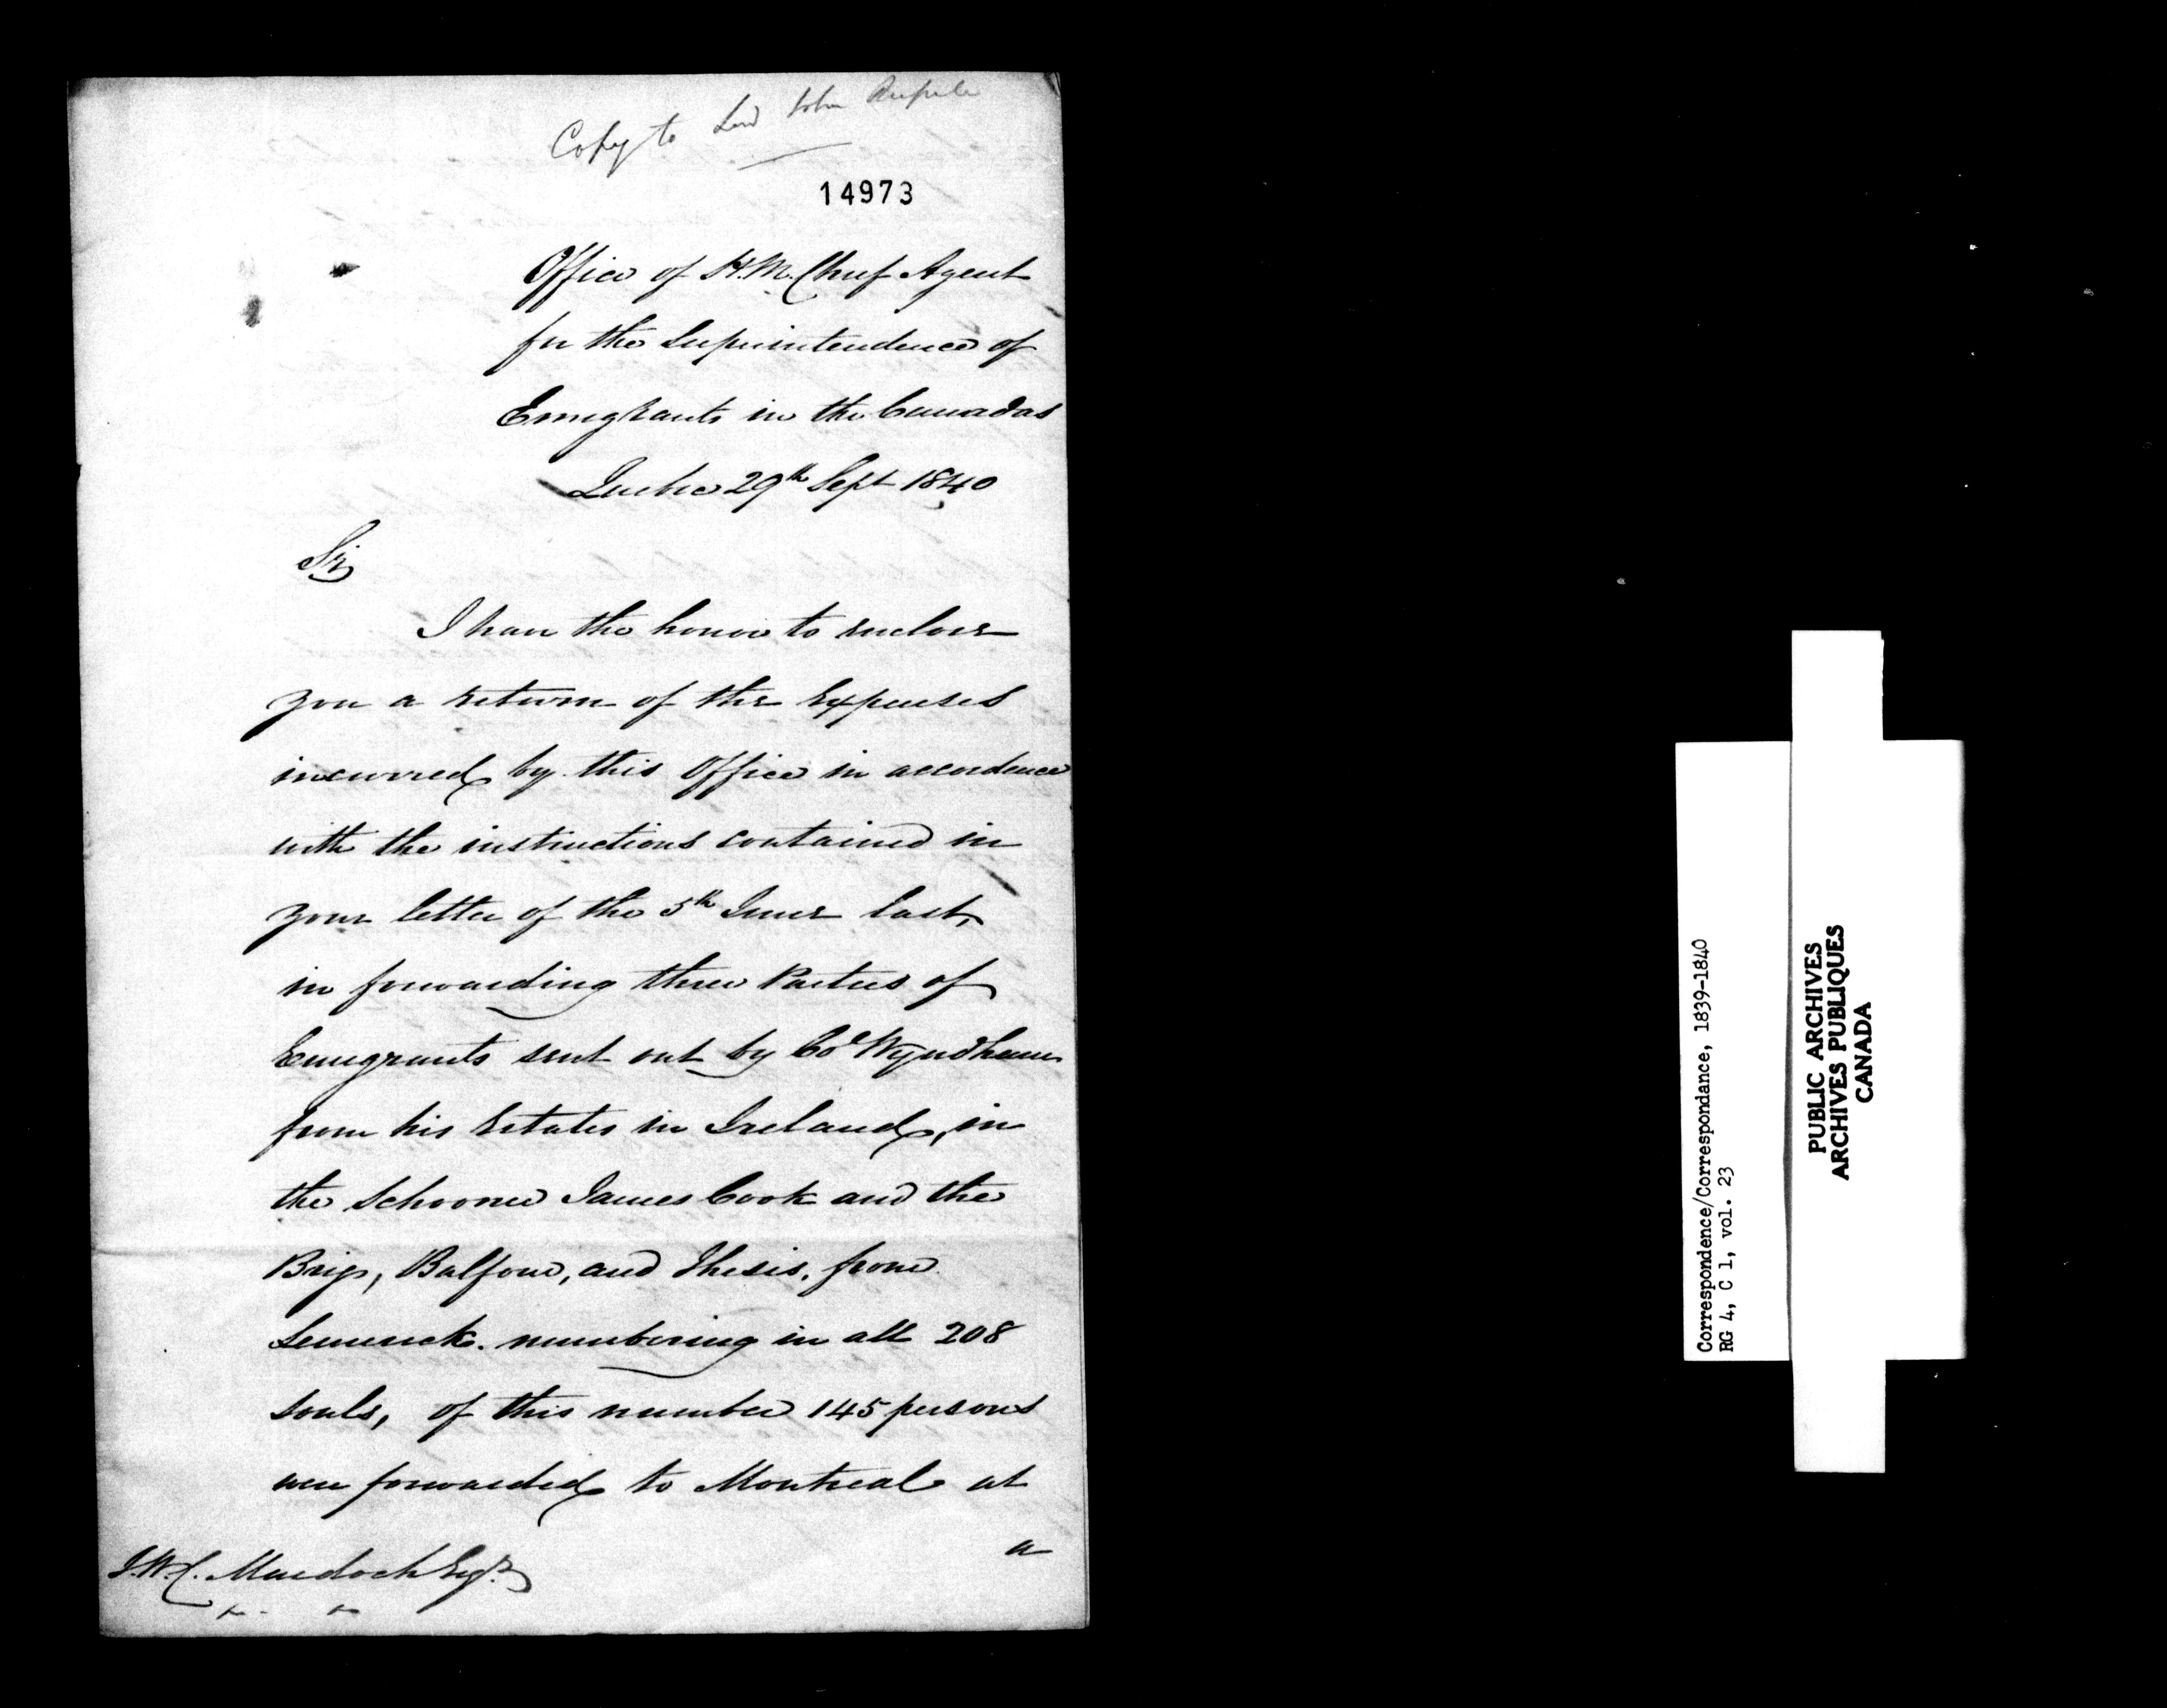 Copy to Lord John Russell
14973
Office of H.M. Chief Agent
for the Superintendence of
Emigrants in the Canadas
Quebec 29th Sept 1840
Sir,
I have the honor to enclose
you a return of the Expenses
incurred by this Office in accordance
with the instructions contained in
your letter of the 5th June last,
in forwarding three Parties of
Emigrants sent out by Col Wyndham
from his Estates in Ireland, in
the Schooner James Cook and the
Brigs, Balfour, and Thesis, from
Limerick. numbering in all 208
souls, of this number 145 persons
were forwarded to Montreal at
a
T.W.C. Murdoch Esqr.
Correspondence/Correspondance, 1839-1840
RG 4, C 1, vol. 23
PUBLIC ARCHIVES
ARCHIVES PUBLIQUES
CANADA